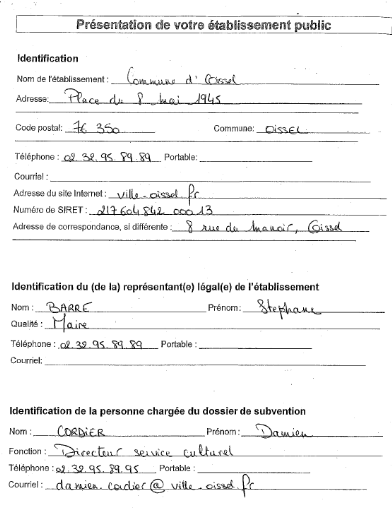 Présentation de votre établissement public
Identification
Nom de l'établissement : Commune d'Oissel
Adresse: Place du 8 mai 1945
Code postal: 76 350 Commune: OISSEL
Téléphone : 02.32.95.89.89 Portable:
Courriel :
Adresse du site Internet : ville-oissel.fr
Numéro de SIRET : 217604842 00013
Adresse de correspondance, si différente : 8 rue du Manoir, Oissel
Identification du (de la) représentant(e) légal(e) de l'établissement
Nom : BARRE Prénom : Stephane
Qualité : Maire
Téléphone : 02.32.95.89.89 Portable :
Courriel:
Identification de la personne chargée du dossier de subvention
Nom : CORDIER Prénom : Damien
Fonction : Directeur service culturel
Téléphone : 02.32.95.89.95 Portable :
Courriel : damien.cordier@ville-oissel.fr